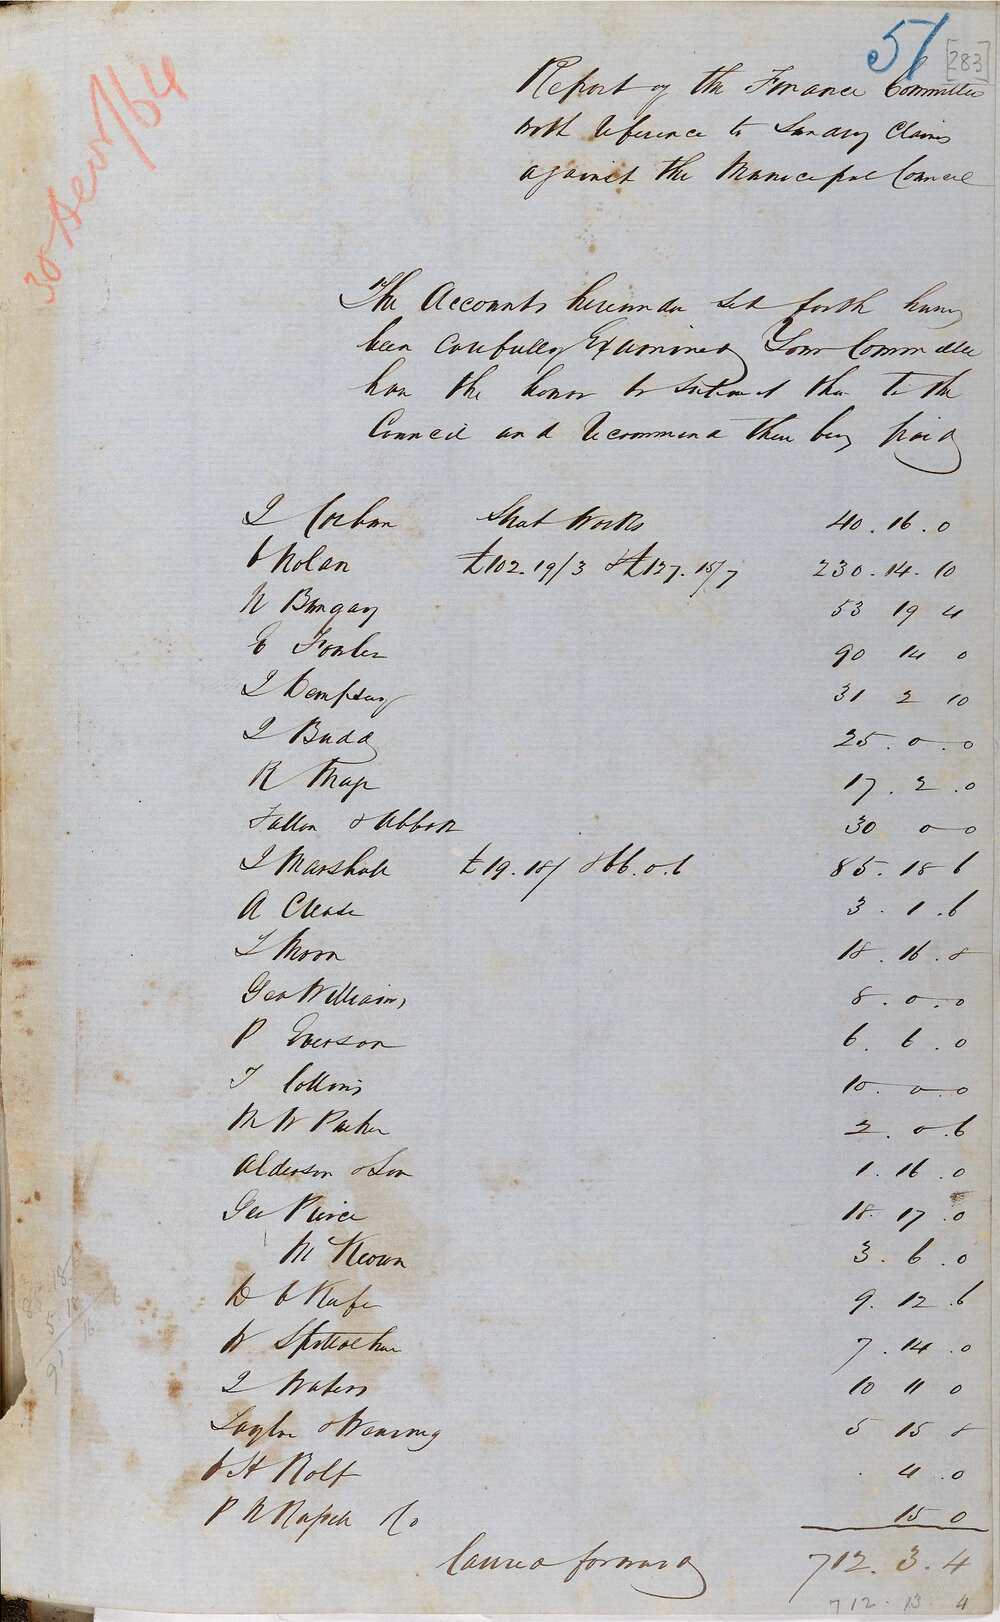 51
[283]
30 /64
Report of the Finance Committee
with reference to Sundry Claims
against the Municipal Council
The Accounts hereunder set forth having
been carefully Examined Your Committee
have the honor to submit them to the
Council and recommend their being paid
J Corban Street Works 40.16.0
C Nolan £102.19/3 & £127.15/7 230.14.10
N Bungay 53 19 4
E Fowler 90 14 0
J Dempsey 31 2 10
J Budd 25.0.0
R 17.2.0
Fallon & Abbott 30 0 0
J Marshall £19.18/ & 66.0.6 85.18 6
A Cleade 3.1.6
T Moon 18.16.8
Geo Williams 8.0.0
P Everson 6.6.0
T Collins 10.0.0
M W Parker 2.0.6
Alderson & Son 1.16.0
Geo Pierce 18.17.0
McKeown 3.6.0
9.12.6
W 7.14.0
J Waters 10 11 0
Taylor & Wearing 5 15 8
C H Rolf 4.0
P N Russell Co 15 0
Carried forward 712.3.4
712.13.4
85.18.
5.18
16